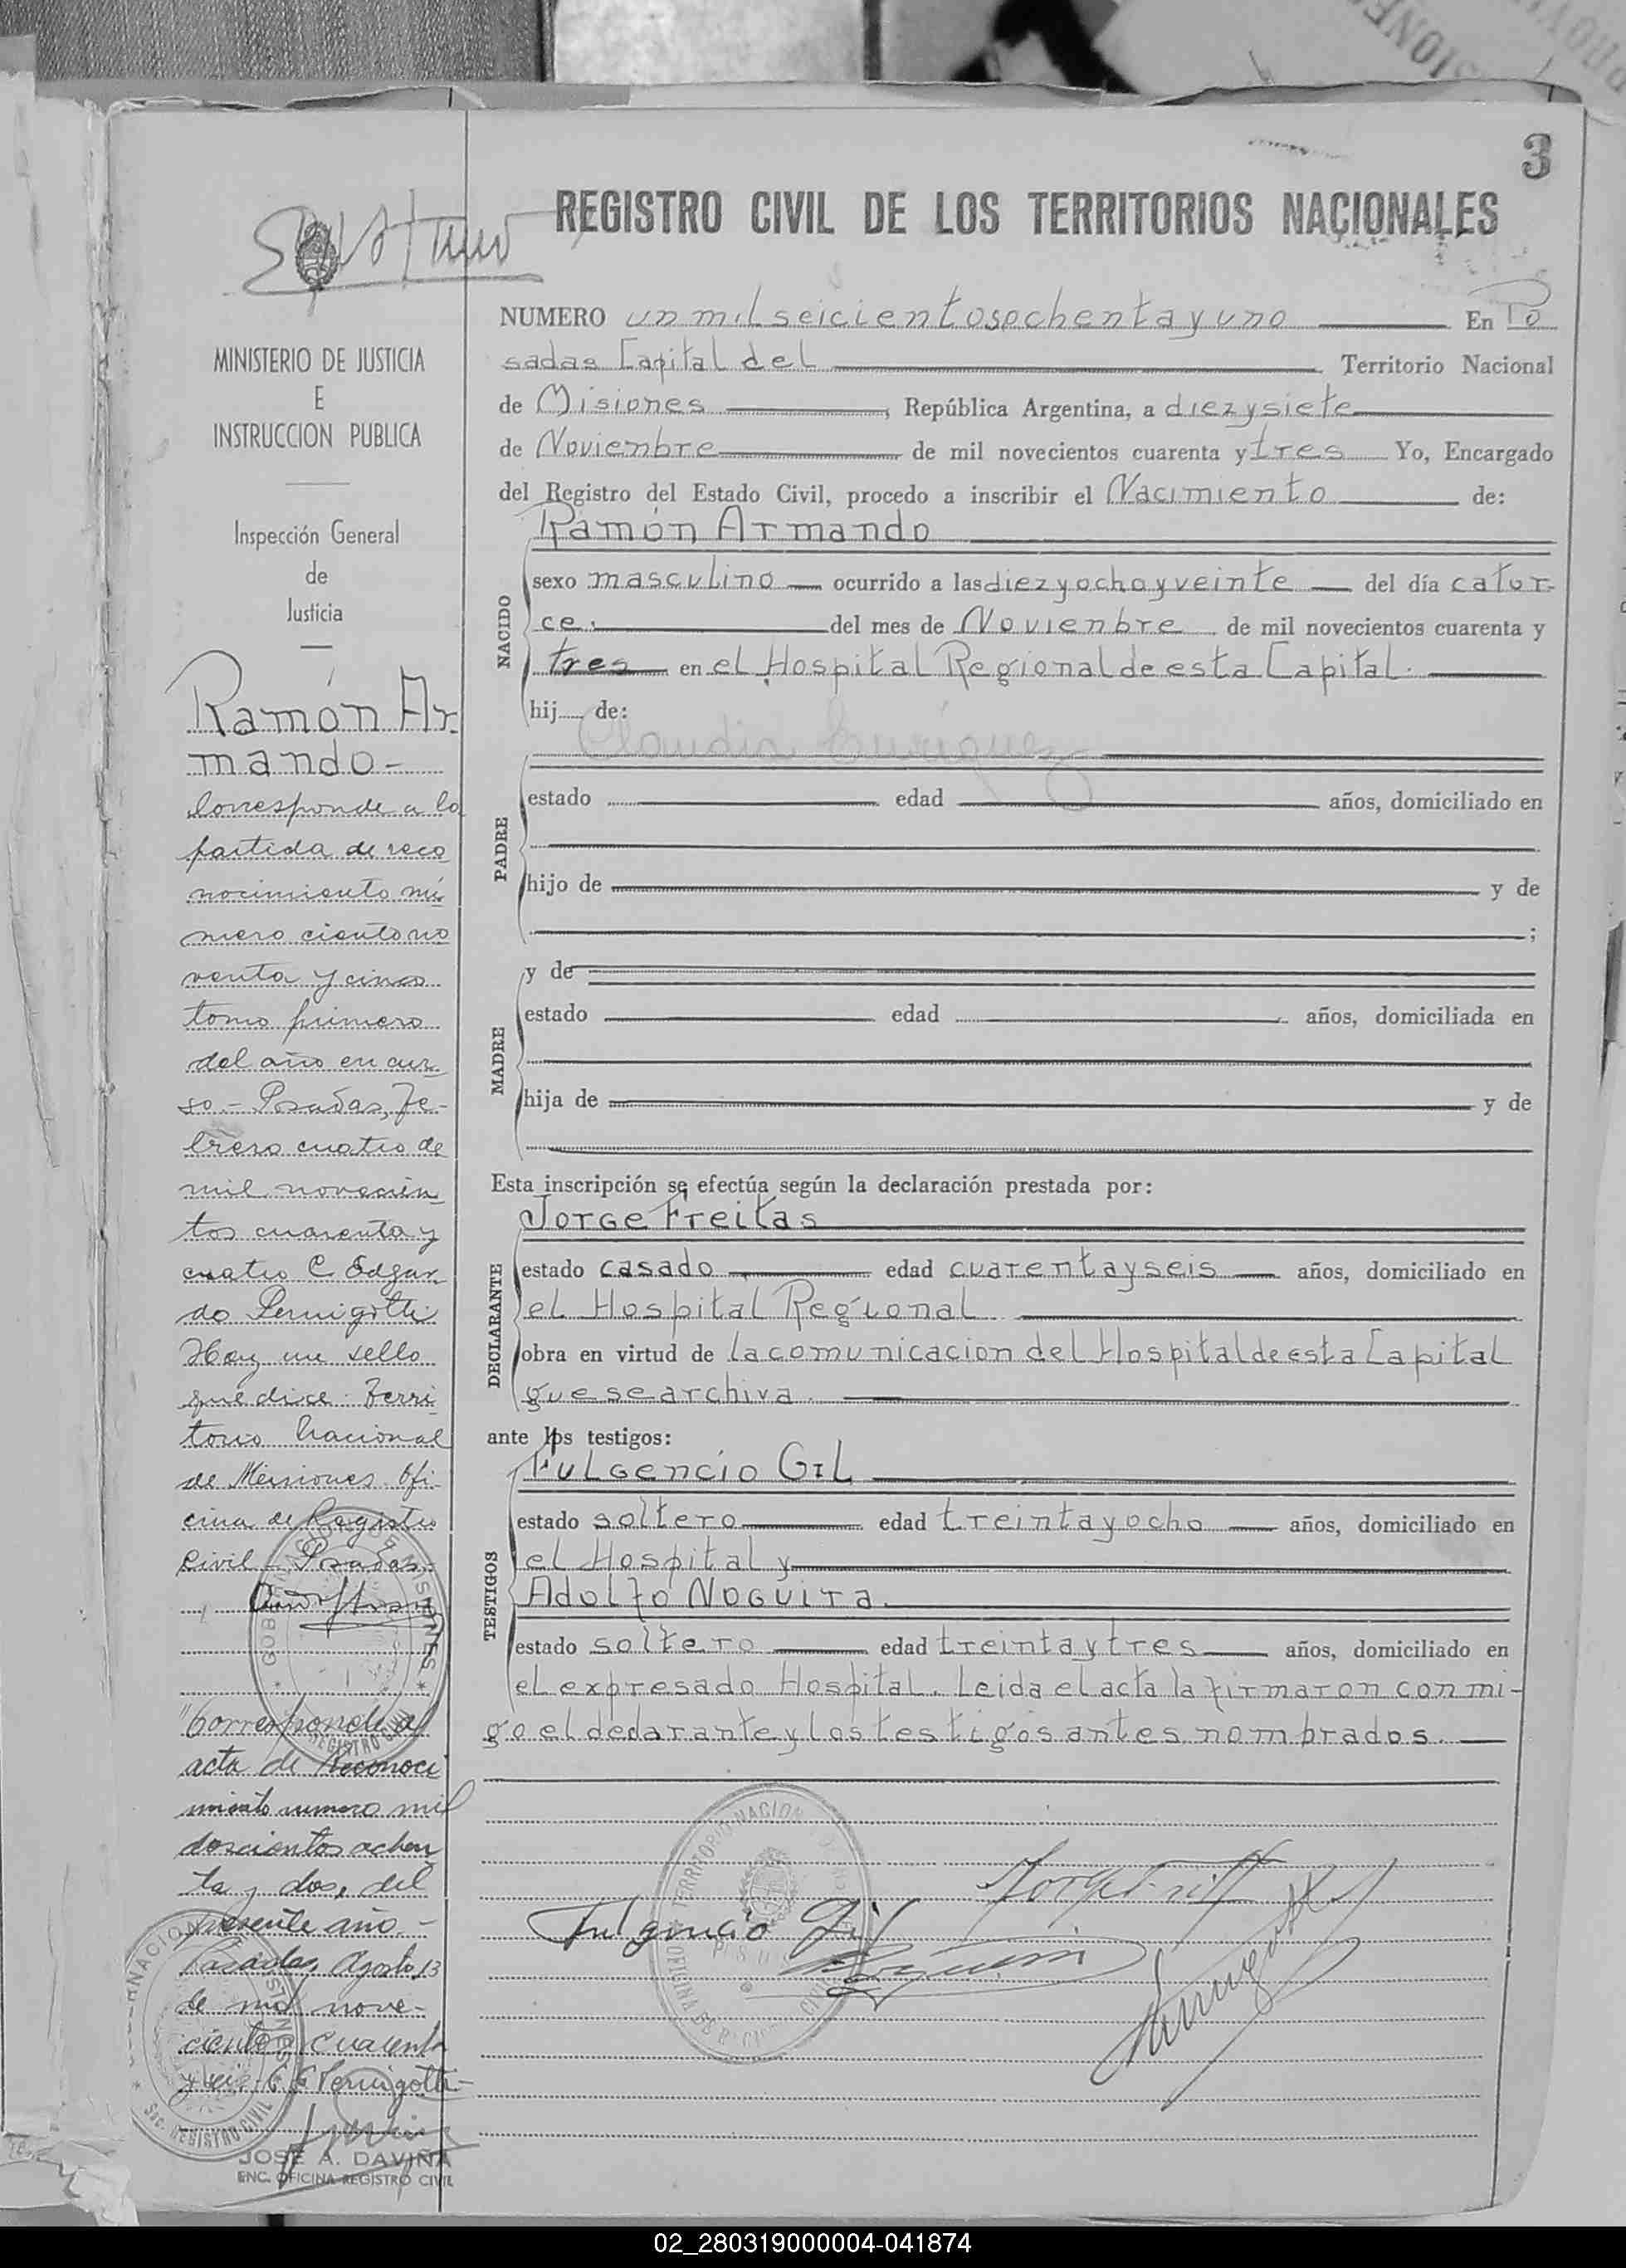 3
REGISTRO CIVIL DE LOS TERRITORIOS NACIONALES
MINISTERIO DE JUSTICIA
E
INSTRUCCION PUBLICA
Inspección General
de
Justicia
Ramón Ar
mando-
Corresponde a la
partida de reco
nocimiento nú
mero ciento no
venta y cinco
tomo primero
del año en cur
so.- Posadas, Fe-
brero cuatro de
mil novecien
tos cuarenta y
cuatro C. Edgar
do Pernigotti
Hay un sello
que dice: Terri
torio Nacional
de Misiones Ofi
cina de Registro
Civil - Posadas-
"Corresponde al
acta de Reconoci
miento numero mil
doscientos ochen
ta y dos, del
presente año.-
Posadas, Agosto 13
de mil nove-
cientos cuarenta
C. E. Pernigotti-
JOSÉ A. DAVIÑA
ENC. OFICINA REGISTRO CIVIL
NUMERO un mil seicientos ochenta y uno En Po
sadas Capital del Territorio Nacional
de Misiones, República Argentina, a diez y siete
de Novienbre de mil novecientos cuarenta y tres Yo, Encargado
del Registro del Estado Civil, procedo a inscribir el Nacimiento de:
NACIDO
Ramón Armando
sexo masculino ocurrido a las diez y ocho y veinte del día cator-
ce. del mes de Novienbre de mil novecientos cuarenta y
tres en el Hospital Regional de esta Capital.
hij de:
PADRE
Claudia Enriquez
estado edad años, domiciliado en
hijo de y de
;
MADRE
y de
estado edad años, domiciliada en
hija de y de
Esta inscripción se efectúa según la declaración prestada por:
DECLARANTE
Jorge Freitas
estado casado edad cuarenta y seis años, domiciliado en
el Hospital Regional
obra en virtud de la comunicacion del Hospital de esta Capital
que se archiva.
ante los testigos:
TESTIGOS
Fulgencio Gil
estado soltero edad treinta y ocho años, domiciliado en
el Hospital y
Adolfo Noguira.
estado soltero edad treinta y tres años, domiciliado en
el expresado Hospital. Leida el acta la firmaron con mi-
go el declarante y los testigos antes nombrados.
Fulgencio Gil
02_280319000004-041874